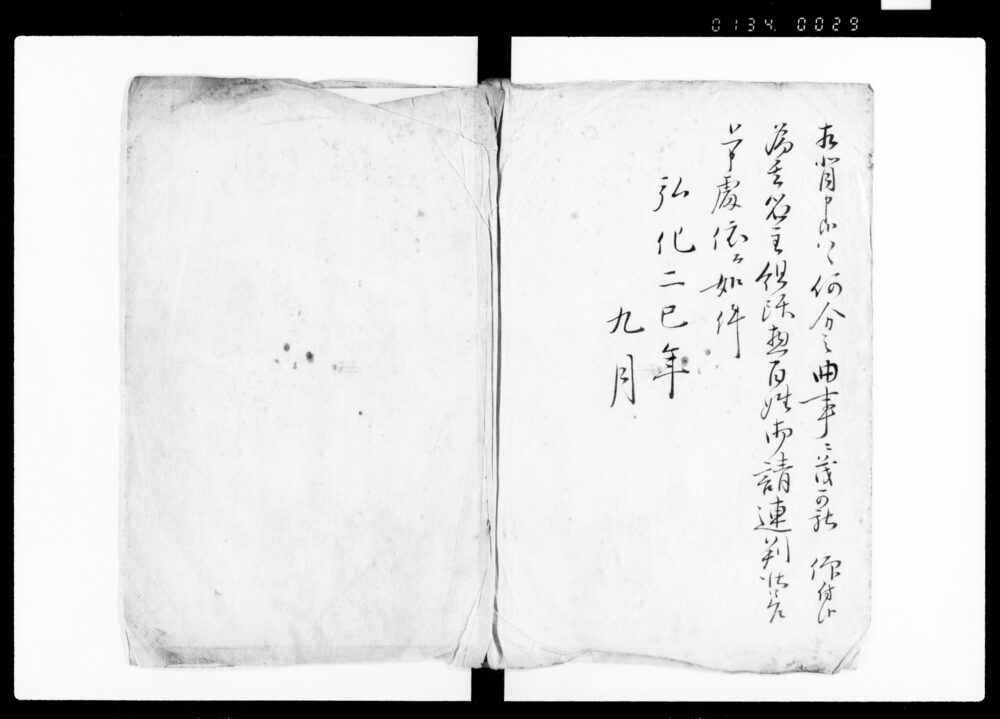 0134 0029
相背申候ハヽ何分之曲事ニ茂可被 仰付候
為其名主組頭惣百姓御請連判状差
上申處依而如件
弘化二巳年
九月